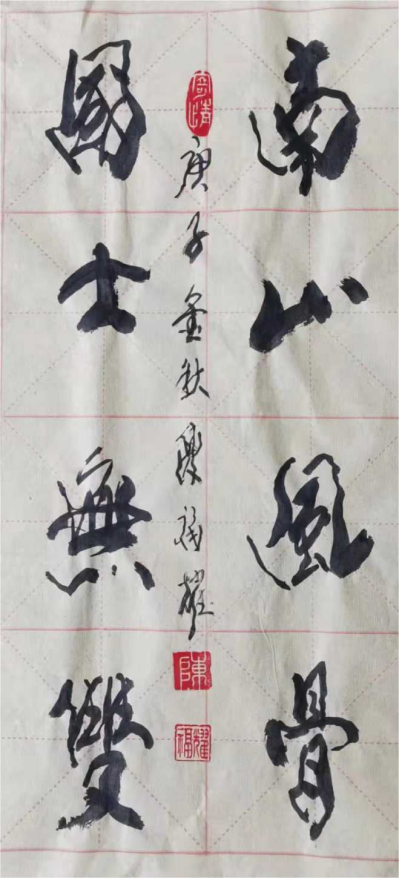 南山風骨
國士無雙
寄情
庚子金秋陳福耀
陳
福耀